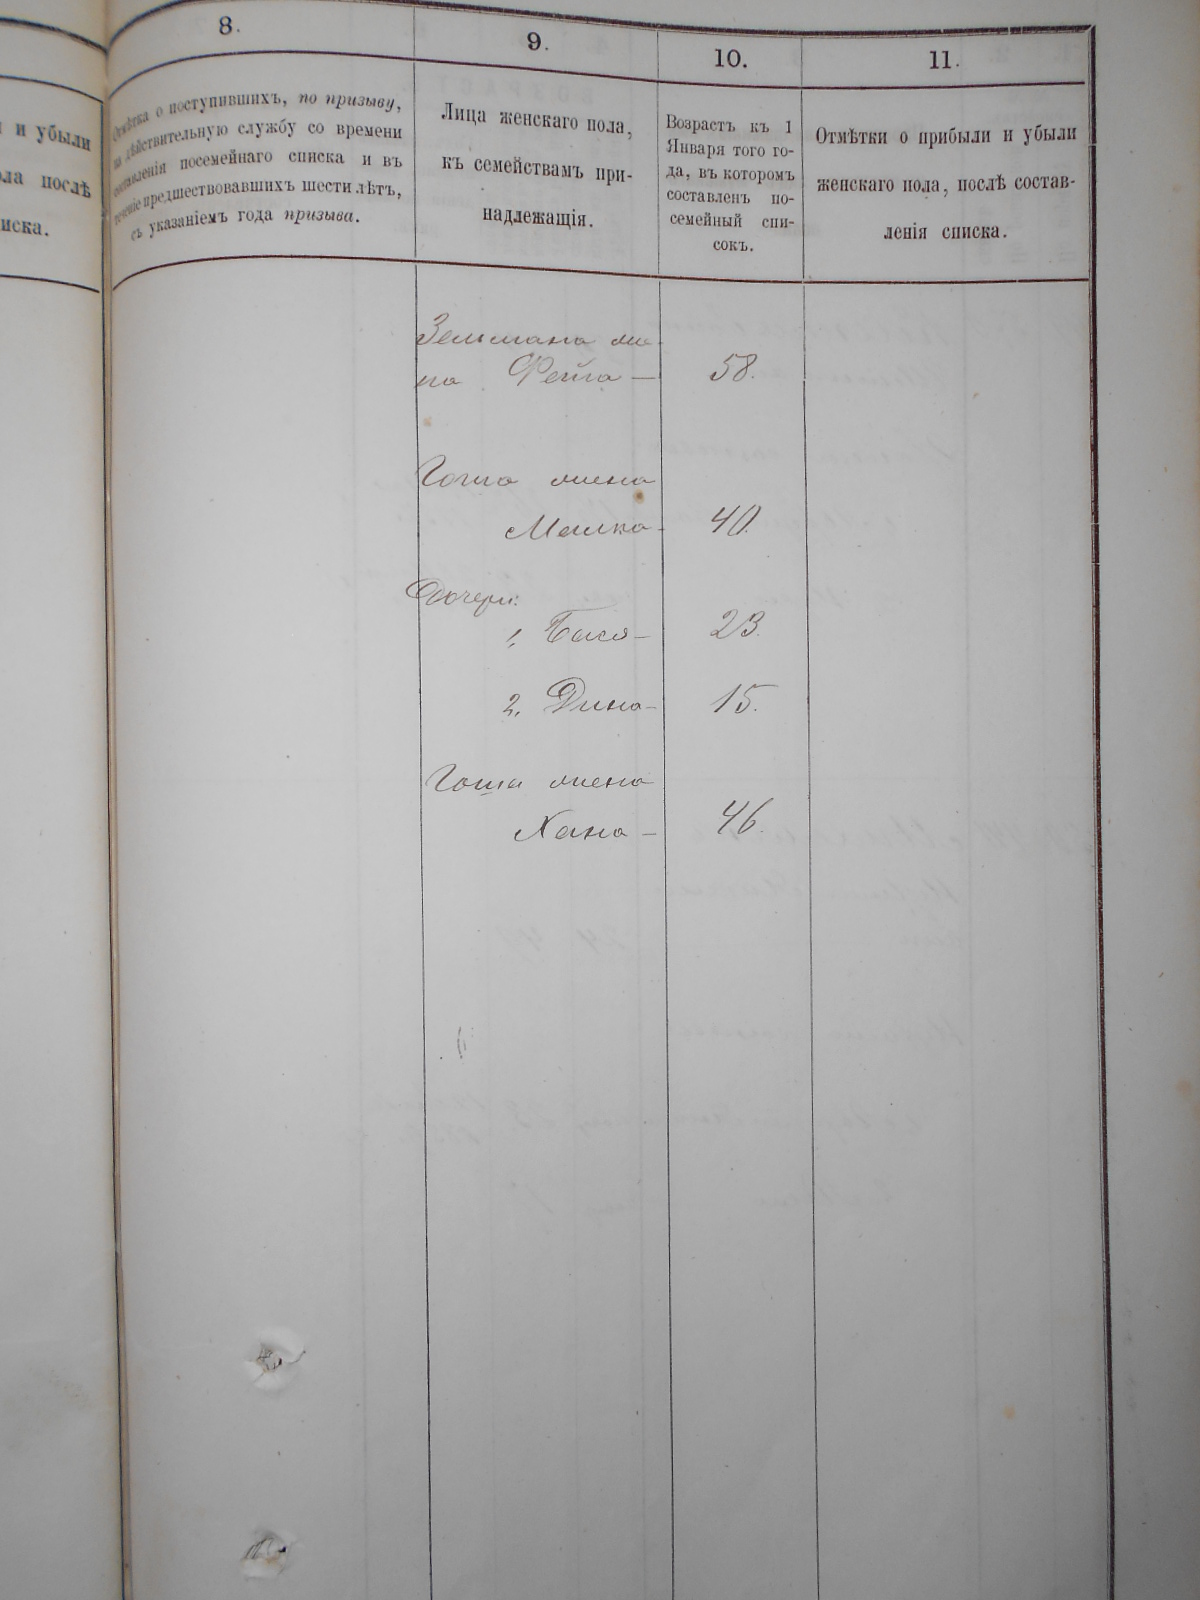 и убыли
ла послѣ
иска.
8.
Отмѣтка о поступившихъ, по призыву,
на дѣйствительную службу со времени
составленія посемейнаго списка и въ
теченіе предшествовавшихъ шести лѣтъ,
съ указаніемъ года призыва.
9.
Лица женскаго пола,
къ семействамъ при-
надлежащія.
10.
Возрастъ къ 1
Января того го-
да, въ которомъ
составленъ по-
семейный спи-
сокъ.
11.
Отмѣтки о прибыли и убыли
женскаго пола, послѣ состав-
ленія списка.
Зельмана же-
на Фейга — 58.
жена
Малка — 40.
Дочери:
1. Бася — 23.
2. Дина — 15.
жена
Хана — 46.